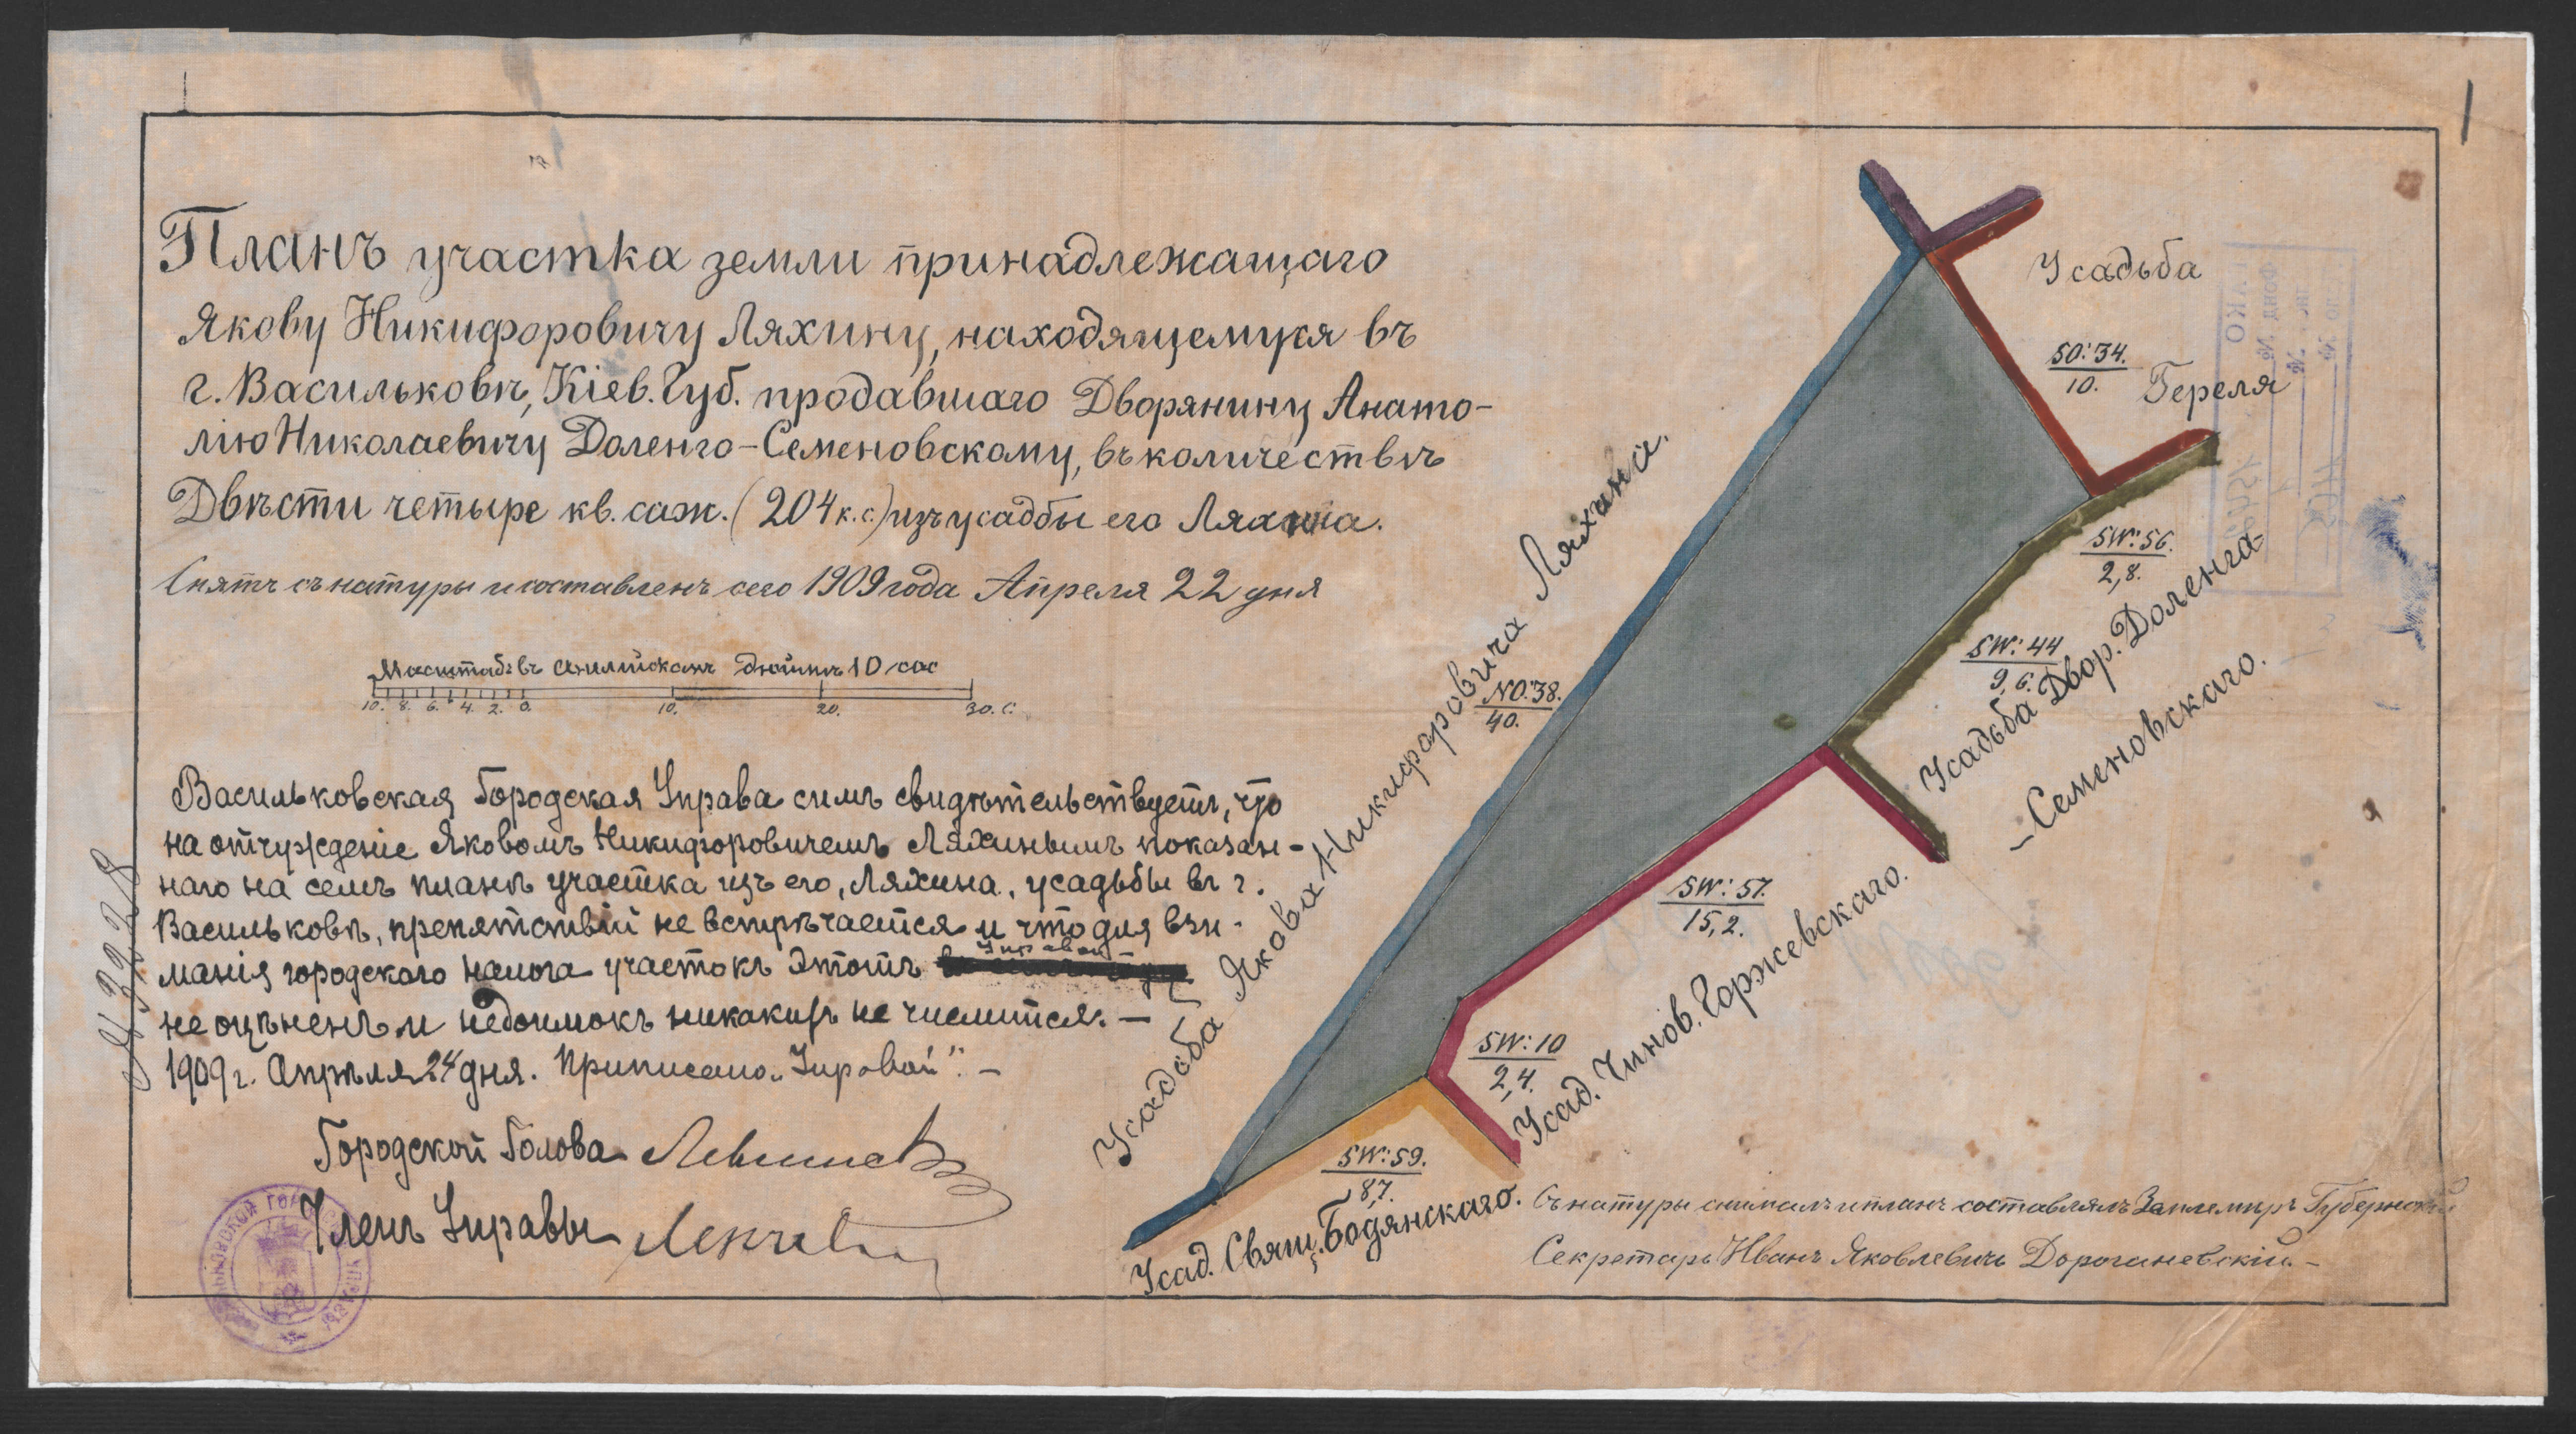 Планъ участка земли принадлежащаго
Якову Никифоровичу Ляхину, находящемуся въ
г. Васильковѣ, Кіев. Губ. продавшаго Дворянину Анато-
лію Николаевичу Доленго-Семеновскому, въ количествѣ
Двѣсти четыре кв. саж. (204 к.с.) изъ усадбы его Ляхина.
Снятъ съ натуры и составленъ сего 1909 года Апреля 22 дня
Масштабъ въ Англійскомъ дюймѣ 10 саж
10. 8. 6. 4. 2. 0. 10. 20. 30. С.
Васильковская Городская Управа симъ свидѣтельствуетъ, что
на отчужденіе Яковомъ Никифоровичемъ Ляхинымъ показан-
наго на семъ планѣ участка изъ его, Ляхина, усадьбы въ г.
Васильковѣ, препятствій не встрѣчается и что для взи-
манія городского налога участокъ этотъ
Управой
не оцѣненъ и недоимокъ никакихъ не числится. —
1909 г. Апрѣля 24 дня. Приписано „Управой“. —
Городской Голова
Членъ Управы
№ 3928
Усадьба Якова Никифоровича Ляхина.
NO: 38.
40.
Усадьба
Гереля
SO: 34.
10.
SW: 56.
2,8.
SW: 44
9,6.
Усадьба Двор. Доленга-
-Семеновскаго.
SW: 57.
15,2.
SW: 10
2,4.
Усад. Чинов. Горжевскаго.
SW: 59.
8,7.
Усад. Свящ. Бодянскаго.
Съ натуры снималъ и планъ составлялъ Землемѣръ Губернскій
Секретарь Иванъ Яковлевичъ -